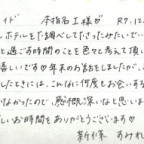 イド 本指名工様が R7.12.
ホテルを調べてくださったみたいで…
と過ごす時間のことを色々考えて頂い
嬉しいです♡年末のお話をしましたが、こ
したときには、こんなに何度もお会いする
なかったので、感慨深いなと思いま
しいお時間をありがとうございます♡
新條 すみれ